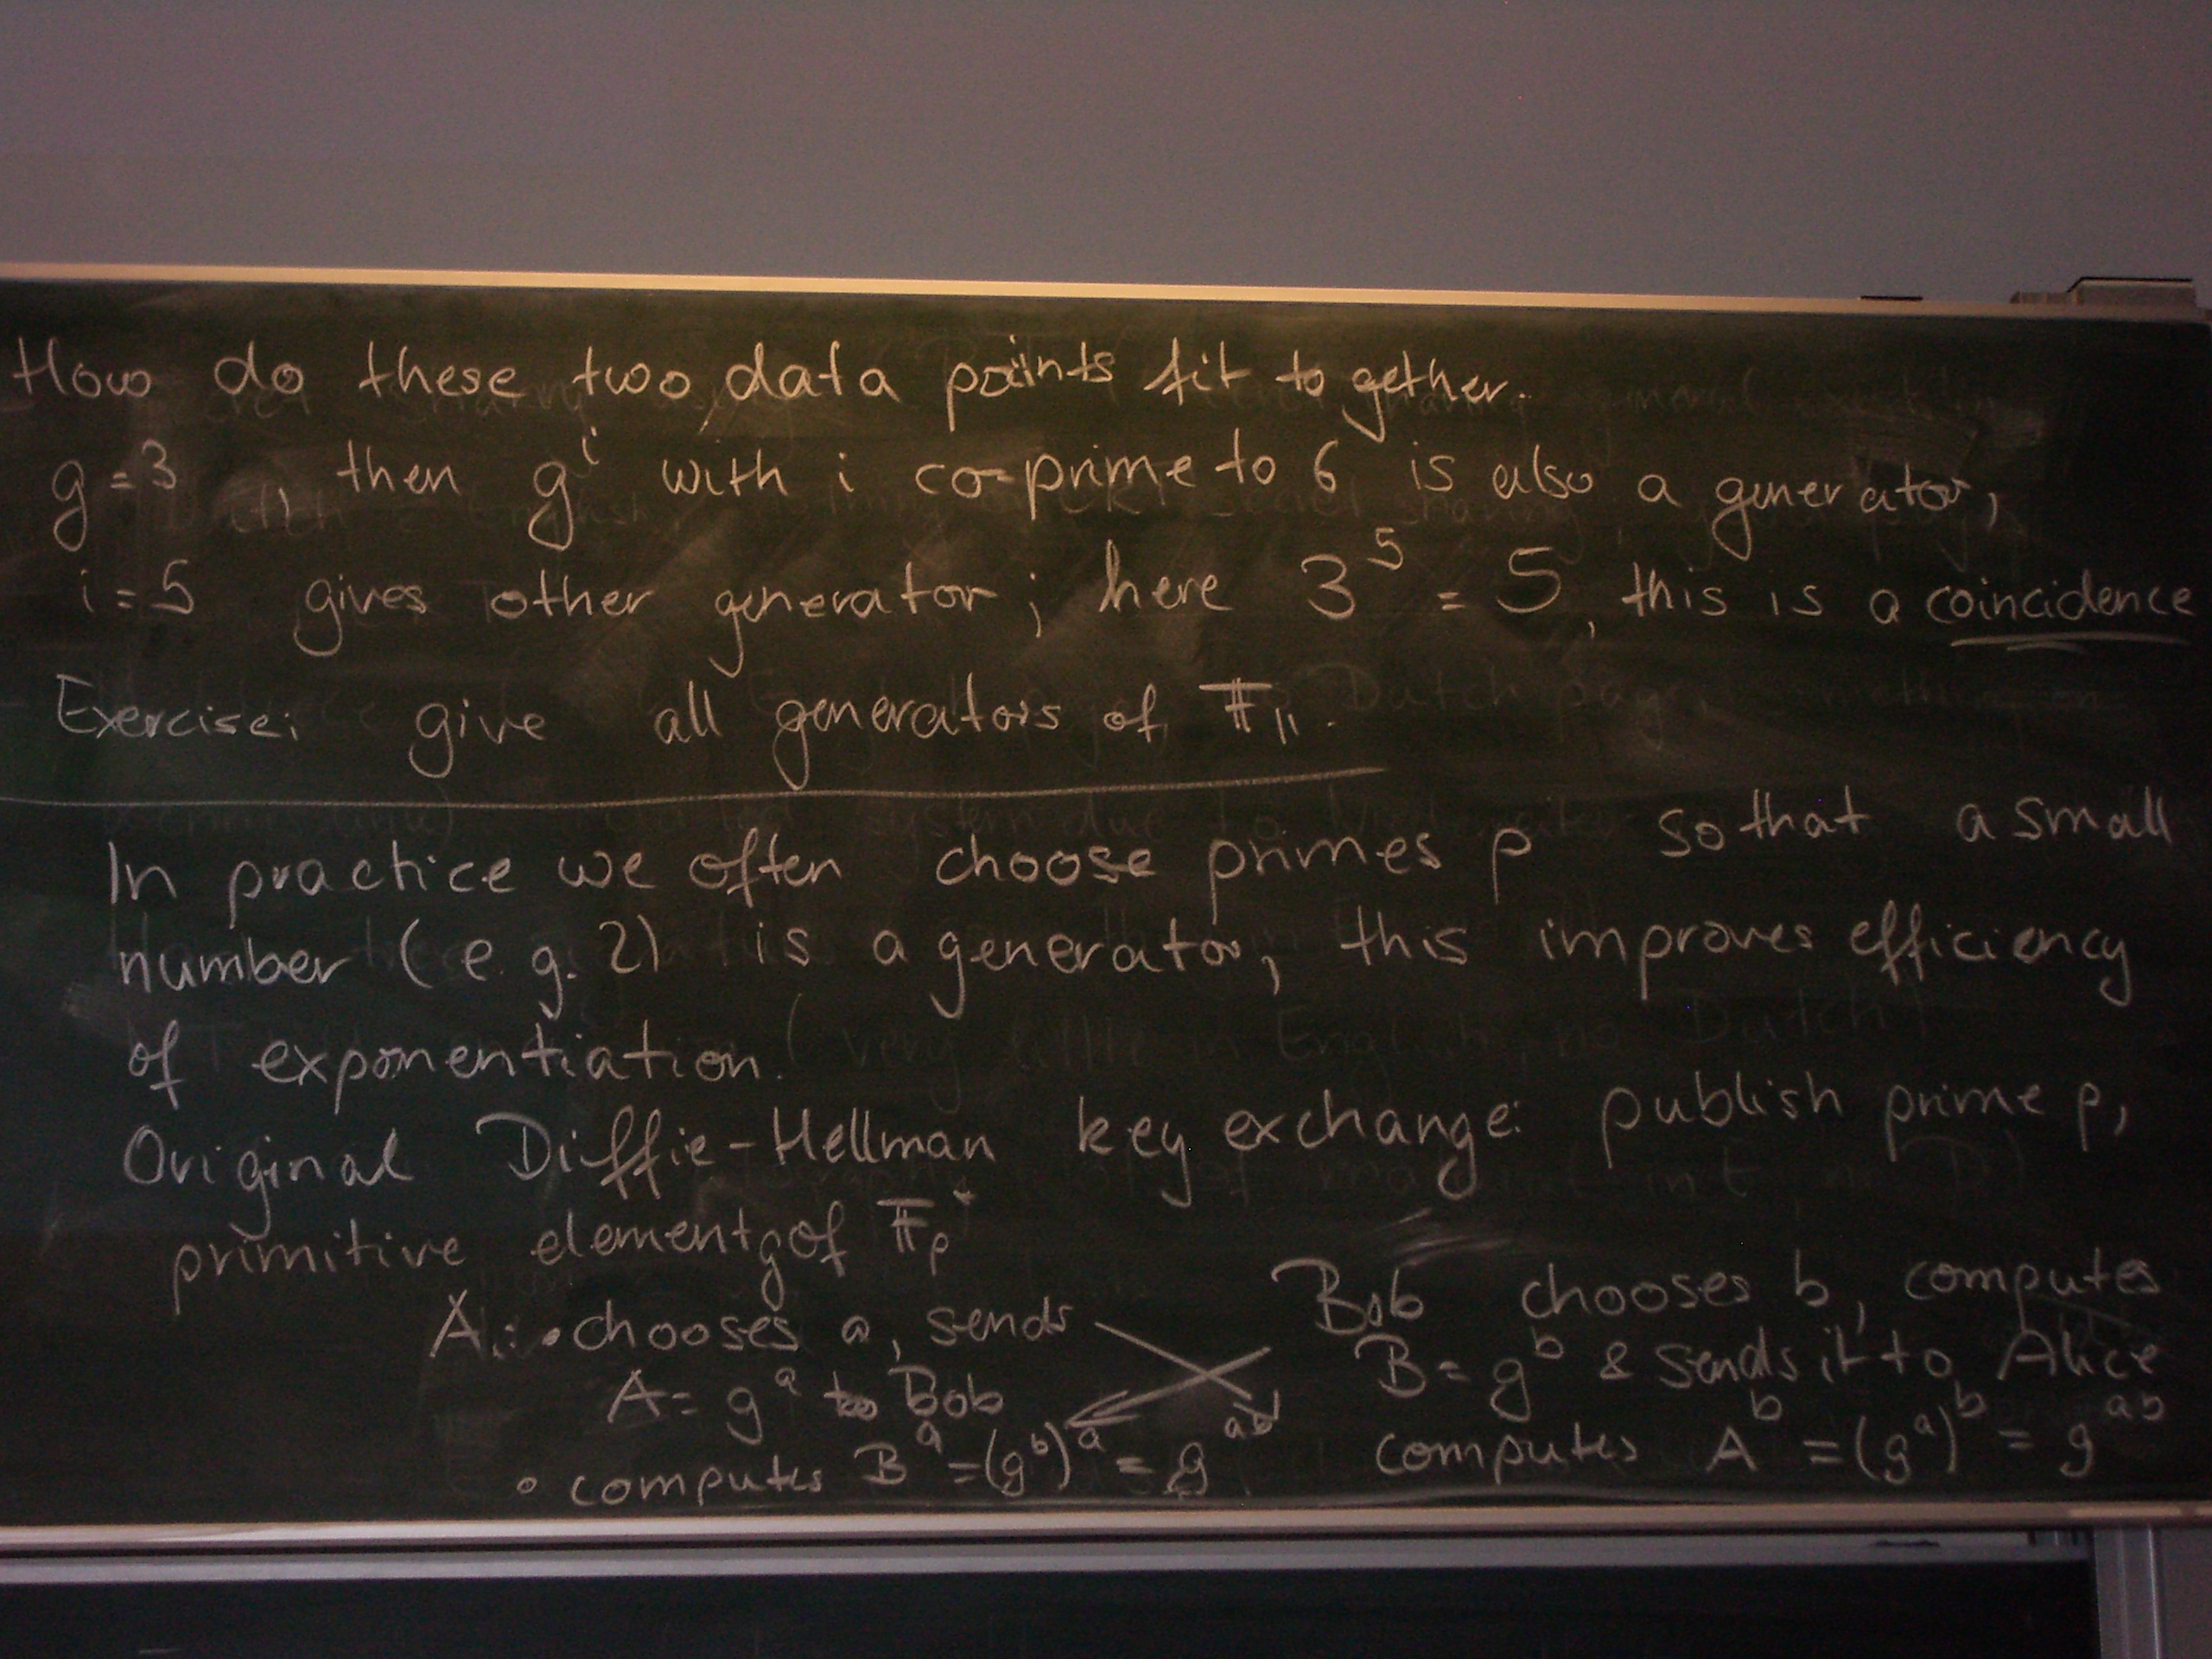 How do these two data points fit to gether.
g=3, then gⁱ with i co-prime to 6 is also a generator,
i=5 gives other generator; here 3⁵ = 5, this is a coincidence
Exercise: give all generators of 𝔽₁₁.
In practice we often choose primes p so that a small
number (e.g. 2) is a generator, this improves efficiency
of exponentiation.
Original Diffie-Hellman key exchange: publish prime p,
primitive element g of 𝔽ₚ*
A: • chooses a, sends
A = gᵃ to Bob
• computes Bᵃ = (gᵇ)ᵃ = gᵃᵇ
Bob chooses b, computes
B = gᵇ & sends it to Alice
computes Aᵇ = (gᵃ)ᵇ = gᵃᵇ